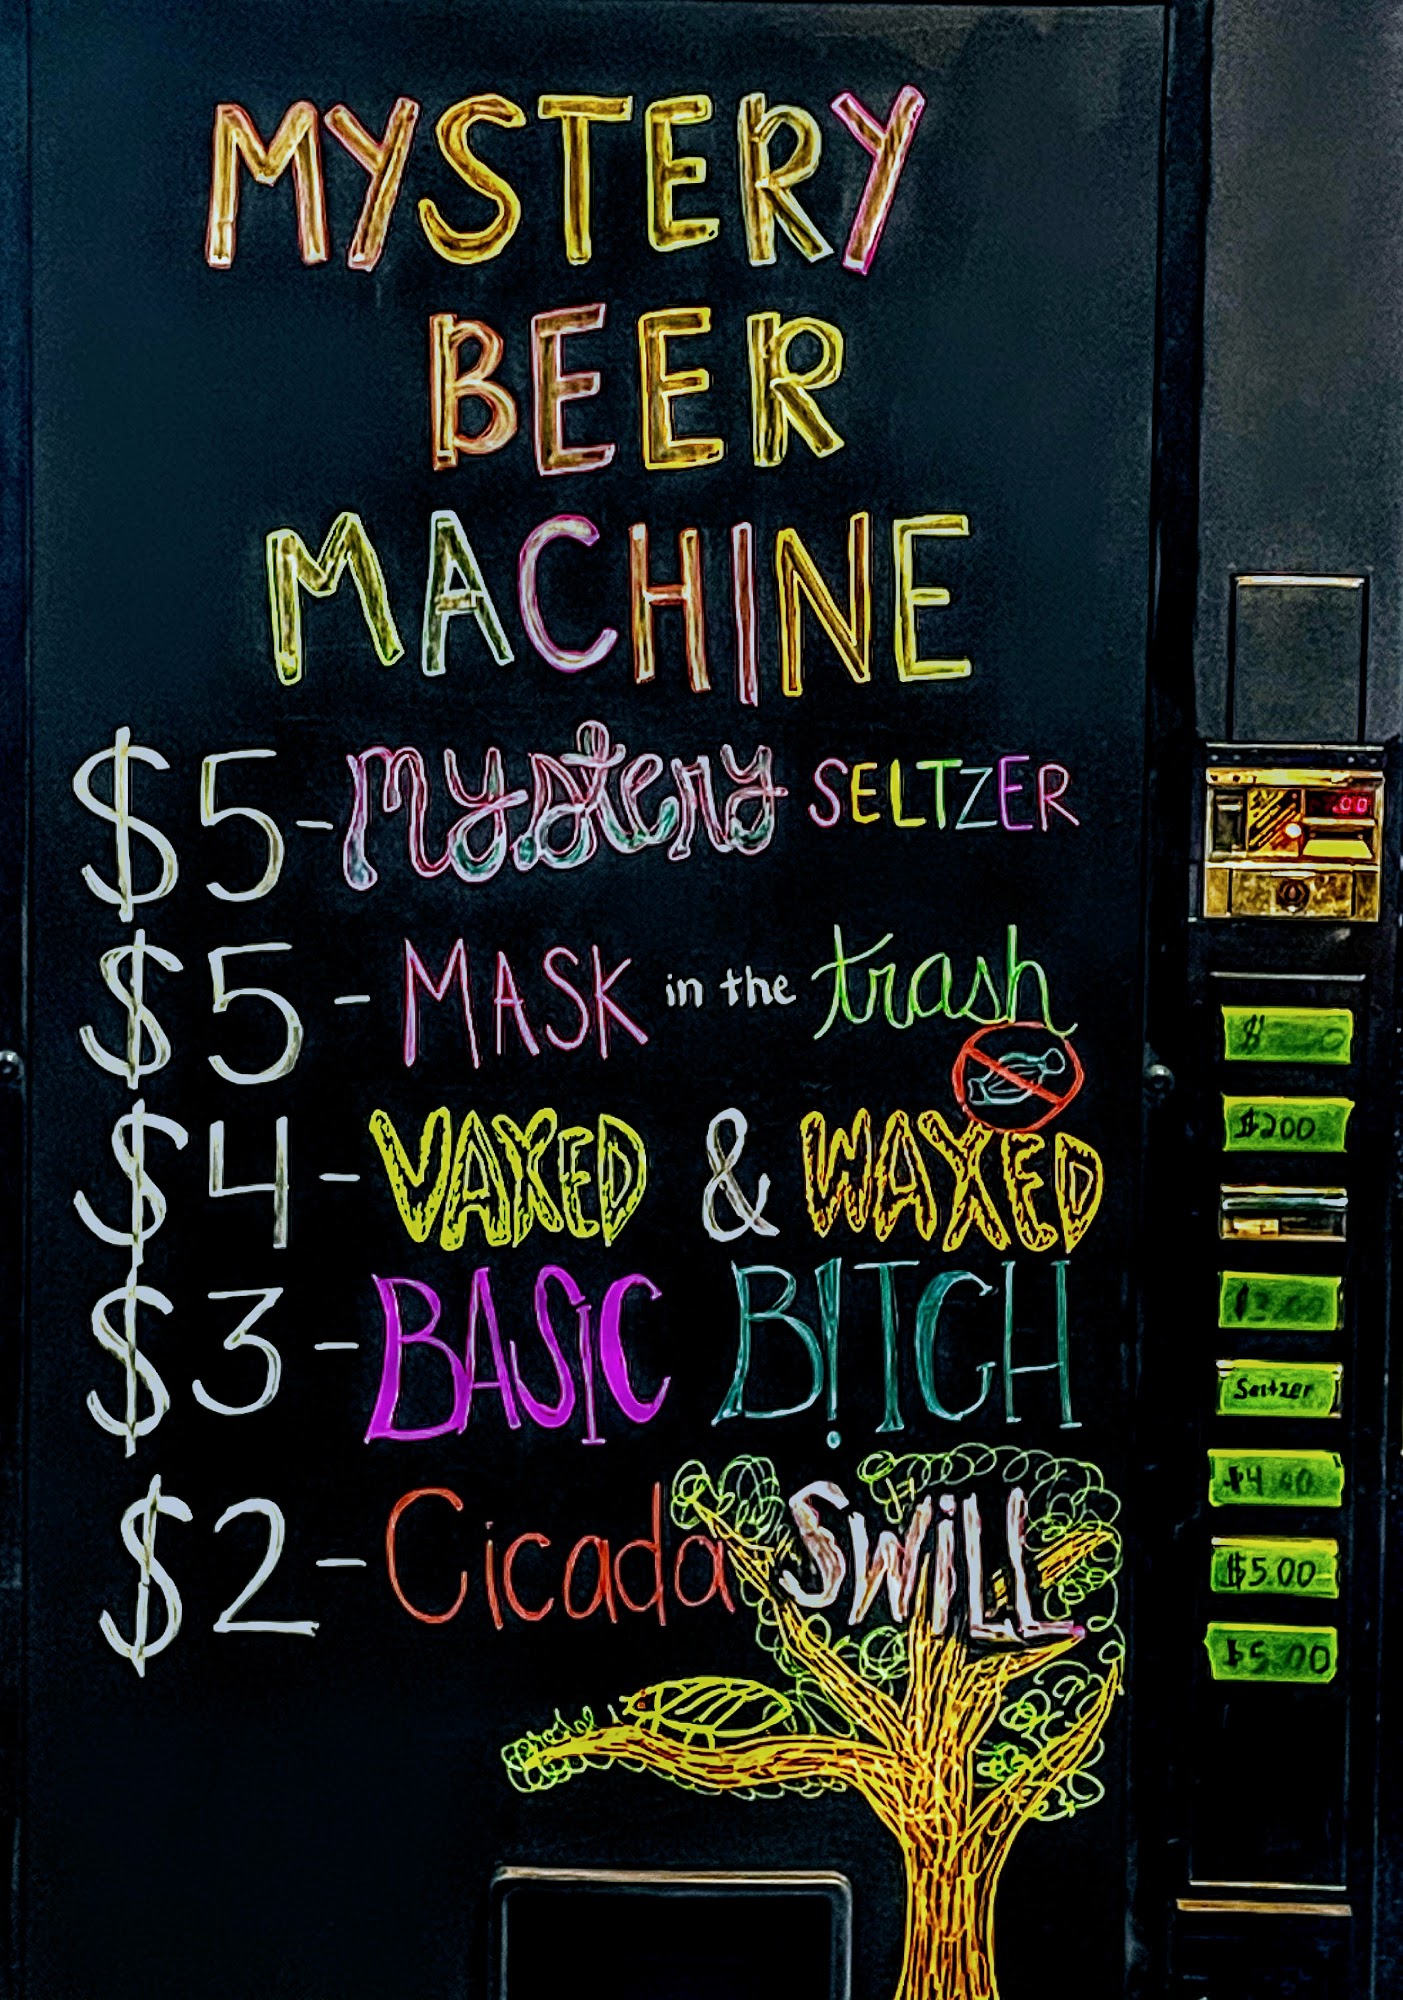 MYSTERY
BEER
MACHINE
$5-mystery SELTZER
$5- MASK in the trash
$4- VAXED & WAXED
$3- BASIC B!TCH
$2- Cicada SWiLL
.00
$200
Seltzer
$5.00
$5.00